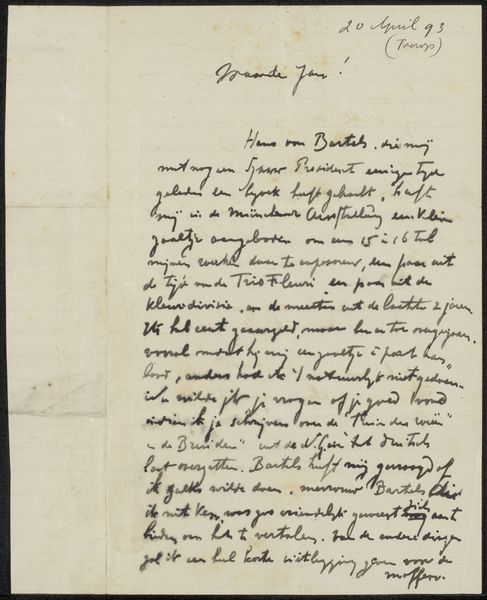 20 April 93
(Toorop)
Waarde Jan!
Hans von Bartels, die mij
met nog een President eenigen tijd
geleden een bezoek heeft gebracht, heeft
mij in de Münchener Ausstellung een klein
zaaltje aangeboden om een 15 à 16 tal
mijner werken daar te exposeeren, een paar uit
de tijd van de Trio Fleuri en paar uit de
kleurdivisie, en de meeste uit de laatste 2 jaren.
Ik heb eerst geaarzeld, maar ben er toe overgegaan.
vooral omdat hij mij een zaaltje à part aan-
bood, anders had ik 't natuurlijk niet gedaan.
Nu wilde ik je vragen of je goed vond
indien ik je schrijven over de "Tuin der weeën"
en de Bruiden" uit de N. Gids in het duitsch
laat overzetten. Bartels heeft mij gevraagd of
ik zulks wilde doen. mevrouw Bartels die
ik niet ken, was zoo vriendelijk geweest zich aan te
bieden om het te vertalen. Van de andere dingen
zal ik een heel korte uitlegging geven voor de
moffen.